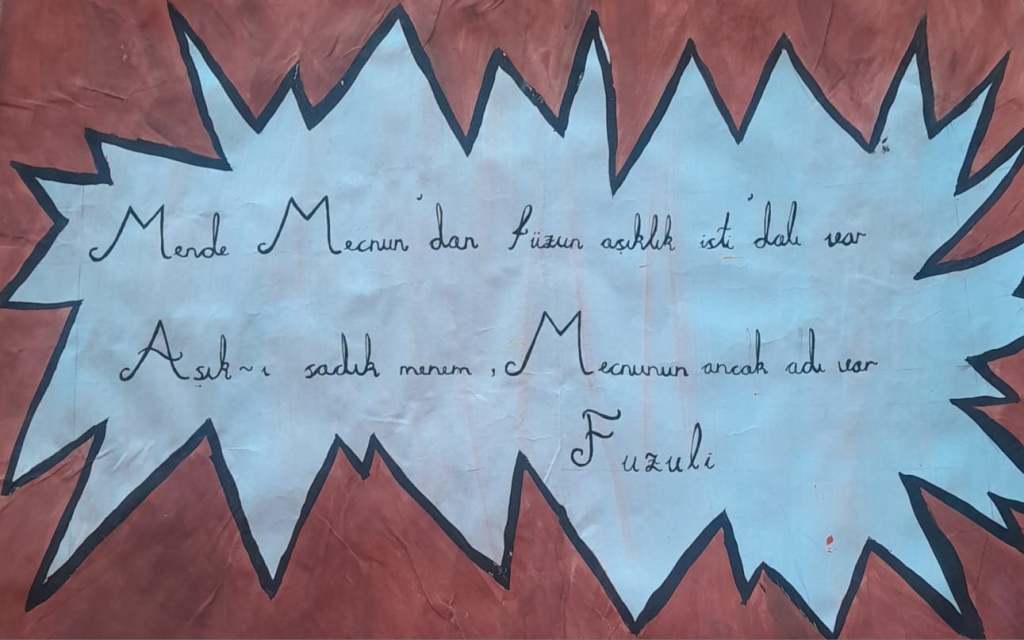 Mende Mecnun'dan füzun aşıklık isti'dalı var
Aşık~ı sadık menem, Mecnunun ancak adı var
Fuzuli